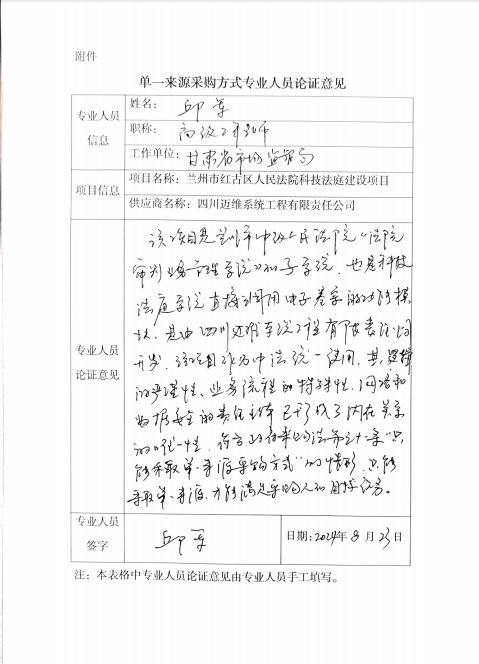 附件
单一来源采购方式专业人员论证意见
专业人员
信息
姓名：邱军
职称：高级工程师
工作单位：甘肃省市场监管局
项目信息
项目名称：兰州市红古区人民法院科技法庭建设项目
供应商名称：四川迈维系统工程有限责任公司
专业人员
论证意见
该项目是兰州市中级人民法院《法院
审判业务管理系统》的子系统，也是科技
法庭系统直接引用电子卷宗的功能模
块，是由四川迈维系统工程有限责任公司
开发，该项目作为中法统一使用，其逻辑
的严谨性、业务流程的特殊性、网络和
数据安全的责任主体已形成了内在关系
的唯一性，符合政府采购法第三十一条"只
能采取单一来源采购方式"的情形，只能
采取单一来源，才能满足采购人和目标任务。
专业人员
签字
邱军
日期：2024年8月23日
注：本表格中专业人员论证意见由专业人员手工填写。